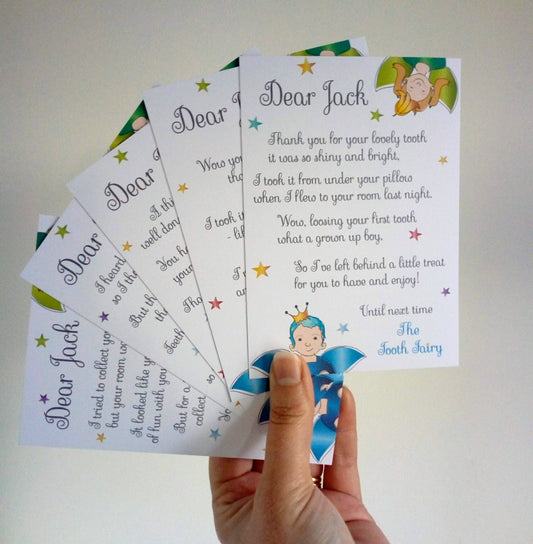 Dear Jack
Thank you for your lovely tooth
it was so shiny and bright,
I took it from under your pillow
when I flew to your room last night.
Wow, loosing your first tooth
what a grown up boy,
So I've left behind a little treat
for you to have and enjoy!
Until next time
The
Tooth Fairy
Dear
Wow yo
tho
I took it
- lik
I
an
Dear
A thi
well don
You h
your
But th
Teeth
Dear
I heard
so I th
But th
the
Tho
Dear Jack
I tried to collect yo
but your room w
It looked like y
of fun with you
But for a
collect
So
Yo